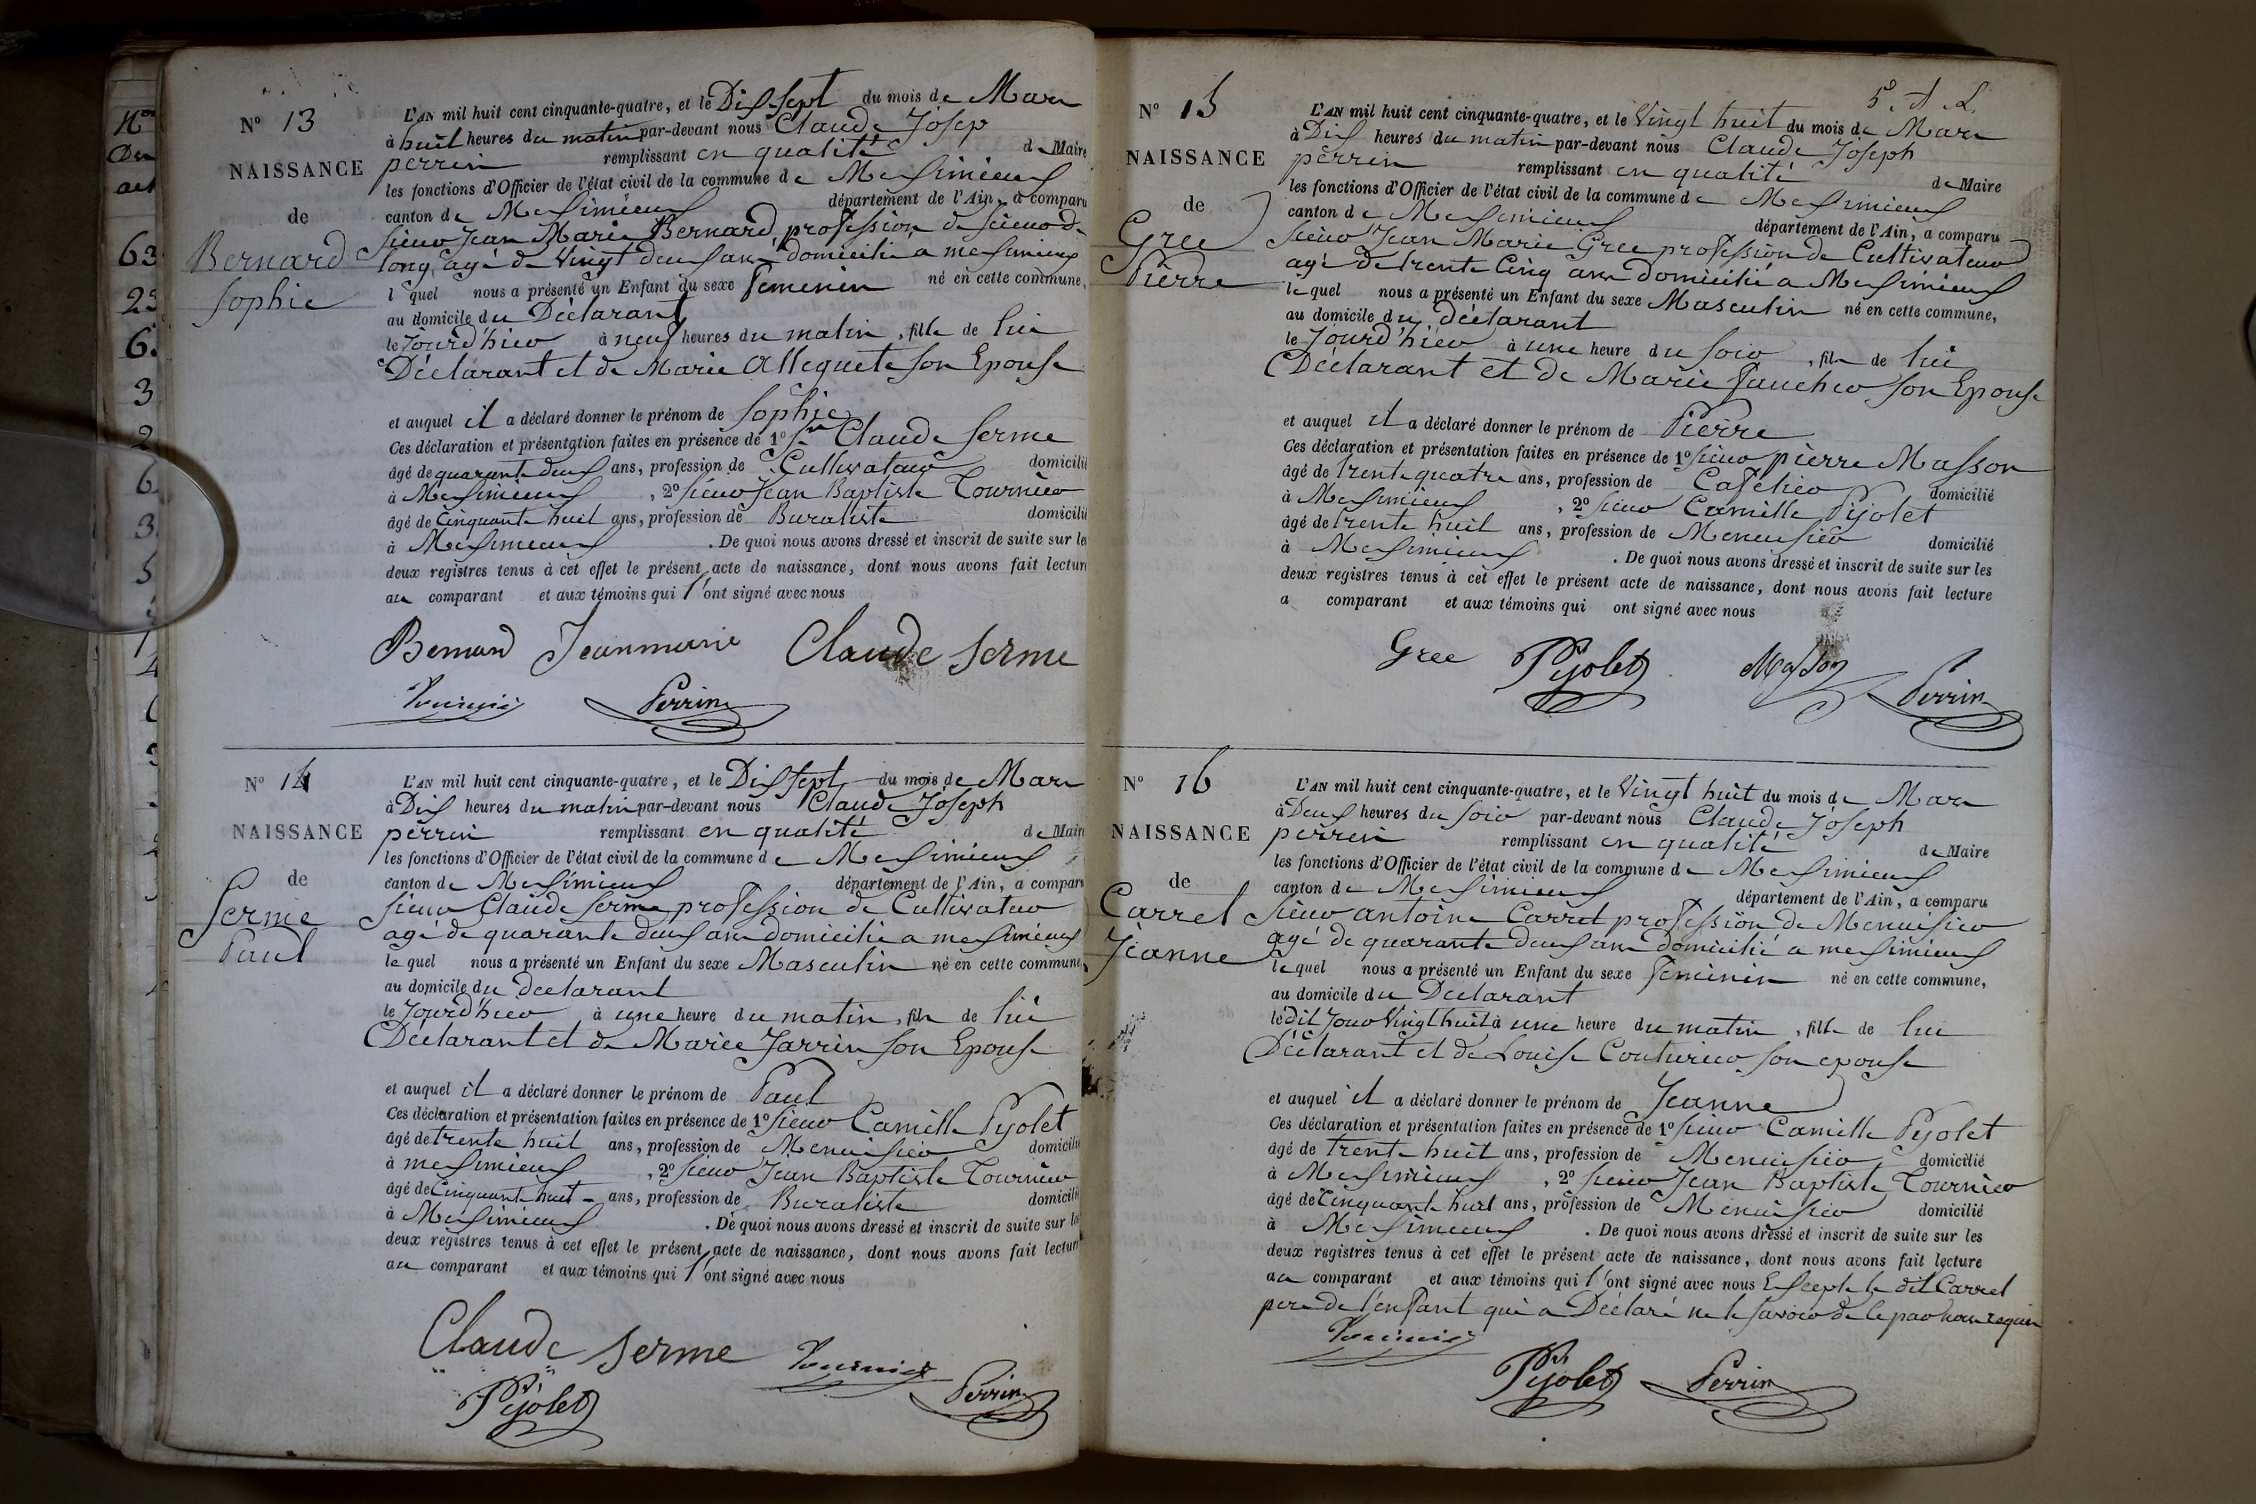 Nos
Des
act
63
25
6.
3
2
6
3
5
N° 13
NAISSANCE
de
Bernard
Sophie
L'AN mil huit cent cinquante-quatre, et le Dix sept du mois de Mars
à huit heures du matin par-devant nous Claude Josep
perrin remplissant en qualité de Maire
les fonctions d'Officier de l'état civil de la commune de Meximieux
canton de Meximieux département de l'Ain, a comparu
sieur Jean Marie Bernard profession de sieur de
long agé de vingt deux ans domicilié a meximieux
lequel nous a présenté un Enfant du sexe feminin né en cette commune,
au domicile du Déclarant
le Jourd'hier à neuf heures du matin, fille de lui
Déclarant et de Marie Allequete son Epouse
et auquel il a déclaré donner le prénom de Sophie
Ces déclaration et présentation faites en présence de 1° sr Claude Serme
âgé de quarante deux ans, profession de Cultivateur domicilié
à Meximieux, 2° sieur Jean Baptiste Tournier
âgé de Cinquante huit ans, profession de Buraliste domicilié
à Meximieux. De quoi nous avons dressé et inscrit de suite sur les
deux registres tenus à cet effet le présent acte de naissance, dont nous avons fait lecture
au comparant et aux témoins qui l'ont signé avec nous
Bernard Jeanmarie Claude Serme
Tournier Perrin
N° 14
NAISSANCE
de
Serme
Paul
L'AN mil huit cent cinquante-quatre, et le Dix sept du mois de Mars
à Dix heures du matin par-devant nous Claude Joseph
perrin remplissant en qualité de Maire
les fonctions d'Officier de l'état civil de la commune de Meximieux
canton de Meximieux département de l'Ain, a comparu
sieur Claude Serme profession de Cultivateur
agé de quarante deux ans domicilié a meximieux
lequel nous a présenté un Enfant du sexe Masculin né en cette commune,
au domicile du declarant
le Jourd'hier à une heure du matin, fils de lui
Déclarant et de Marie Jarrin son Epouse
et auquel il a déclaré donner le prénom de Paul
Ces déclaration et présentation faites en présence de 1° sieur Camille Pijolet
âgé de trente huit ans, profession de Menuisier domicilié
à meximieux, 2° sieur Jean Baptiste Tournier
âgé de Cinquante huit ans, profession de Buraliste domicilié
à Meximieux. De quoi nous avons dressé et inscrit de suite sur les
deux registres tenus à cet effet le présent acte de naissance, dont nous avons fait lecture
au comparant et aux témoins qui l'ont signé avec nous
Claude Serme Tournier
Pijolet Perrin
N° 15
NAISSANCE
de
Gree
Pierre
L'AN mil huit cent cinquante-quatre, et le Vingt huit du mois de Mars
à Dix heures du matin par-devant nous Claude Joseph
perrin remplissant en qualité de Maire
les fonctions d'Officier de l'état civil de la commune de Meximieux
canton de Meximieux département de l'Ain, a comparu
sieur Jean Marie Gree profession de Cultivateur
agé de trente Cinq ans domicilié a Meximieux
lequel nous a présenté un Enfant du sexe Masculin né en cette commune,
au domicile du déclarant
le Jourd'hier à une heure du soir, fils de lui
Déclarant et de Marie Faucher son Epouse
et auquel il a déclaré donner le prénom de Pierre
Ces déclaration et présentation faites en présence de 1° sieur pierre Masson
âgé de trente quatre ans, profession de Cafetier domicilié
à Meximieux, 2° sieur Camille Pijolet
âgé de trente huit ans, profession de Menuisier domicilié
à Meximieux. De quoi nous avons dressé et inscrit de suite sur les
deux registres tenus à cet effet le présent acte de naissance, dont nous avons fait lecture
a comparant et aux témoins qui ont signé avec nous
Gree Pijolet Masson Perrin
N° 16
NAISSANCE
de
Carrel
Jeanne
L'AN mil huit cent cinquante-quatre, et le Vingt huit du mois de Mars
à Deux heures du soir par-devant nous Claude Joseph
perrin remplissant en qualité de Maire
les fonctions d'Officier de l'état civil de la commune de Meximieux
canton de Meximieux département de l'Ain, a comparu
sieur antoine Carrel profession de Menuisier
agé de quarante deux ans domicilié a meximieux
lequel nous a présenté un Enfant du sexe feminin né en cette commune,
au domicile du Declarant
le dit Jour Vingt huit à une heure du matin, fille de lui
Déclarant et de Louise Couturier son epouse
et auquel il a déclaré donner le prénom de Jeanne
Ces déclaration et présentation faites en présence de 1° sieur Camille Pijolet
âgé de trente huit ans, profession de Menuisier domicilié
à Meximieux, 2° sieur Jean Baptiste Tournier
âgé de Cinquante huit ans, profession de Menuisier domicilié
à Meximieux. De quoi nous avons dressé et inscrit de suite sur les
deux registres tenus à cet effet le présent acte de naissance, dont nous avons fait lecture
au comparant et aux témoins qui l'ont signé avec nous Excepte le dit Carrel
pere de l'enfant qui a Déclaré ne le savoir de ce par nous requis
Tournier
Pijolet Perrin